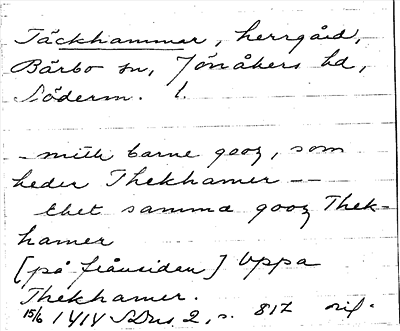 Täckhammar, herrgård,
Bärbo sn, Jönåkers hd,
Söderm. l.
- mith barne gooz, som
heder Thekhamer --
thet samma gooz Thek-
hamer
[på frånsidan] Uppa
Thekhamer.
15/6 1414 SDns 2, s. 817 orig.